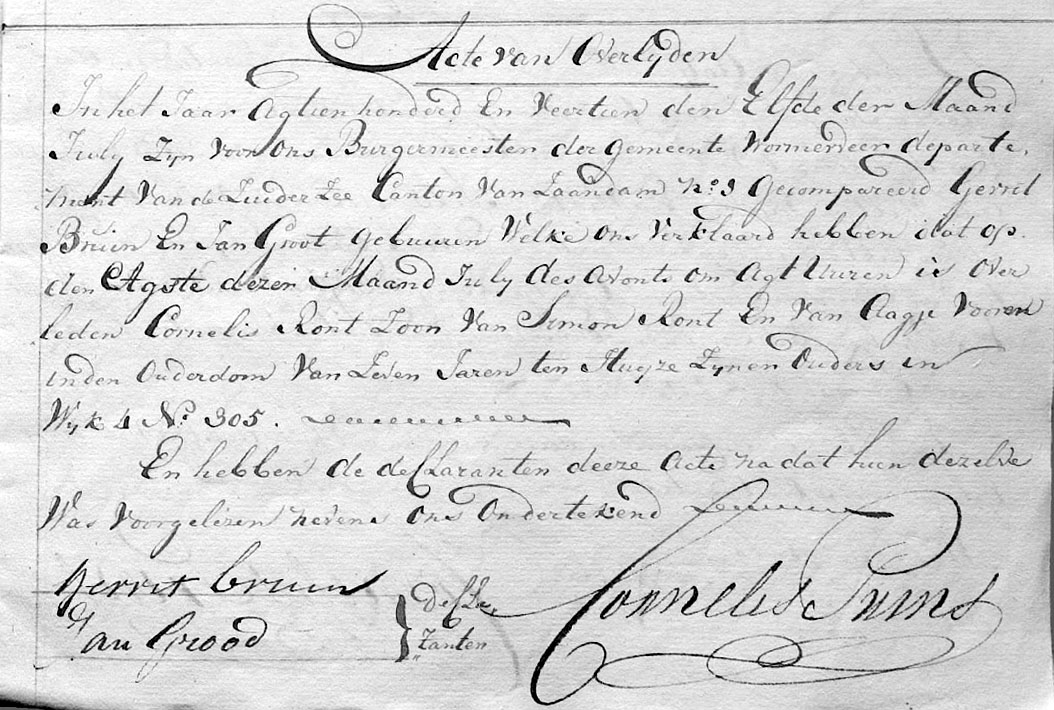 Acte van Overlyden
In het Jaar Agtienhonderd En Veertien den Elfde der Maand
July Zyn Voor Ons Burgermeester der gemeente Wormerveer departe,
ment Van de Zuider Zee Canton Van Zaandam No. 9 Gecompareerd Gerrit
Bruin En Jan Groot gebuuren Welke ons Verklaard hebben dat op
den Agste dezer Maand July des avonts om Agt Uuren is Over
leden Cornelis Ront Zoon Van Simon Ront En Van Aagje Vooren
inden Ouderdom Van Zeven Jaren ten Huyze Zynen Ouders in
Wyk 4 No. 305.
En hebben de declaranten deeze Acte na dat hun dezelve
Was Voorgelezen nevens Ons Ondertekend
gerrit bruin
Jan Grood
Decla,
ranten
Cornelis